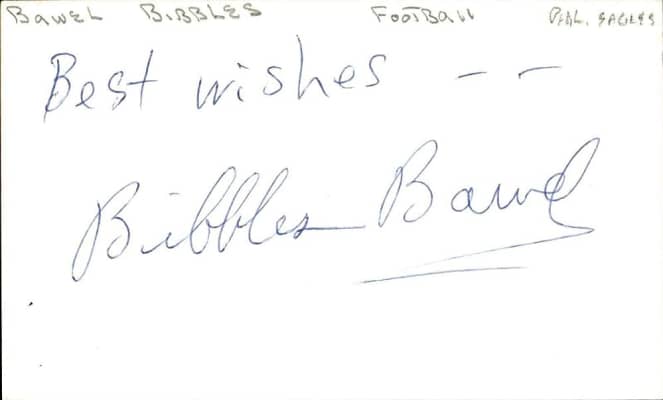 BAWEL BIBBLES FOOTBALL PHIL. EAGLES
Best wishes - -
Bibbles Bawel